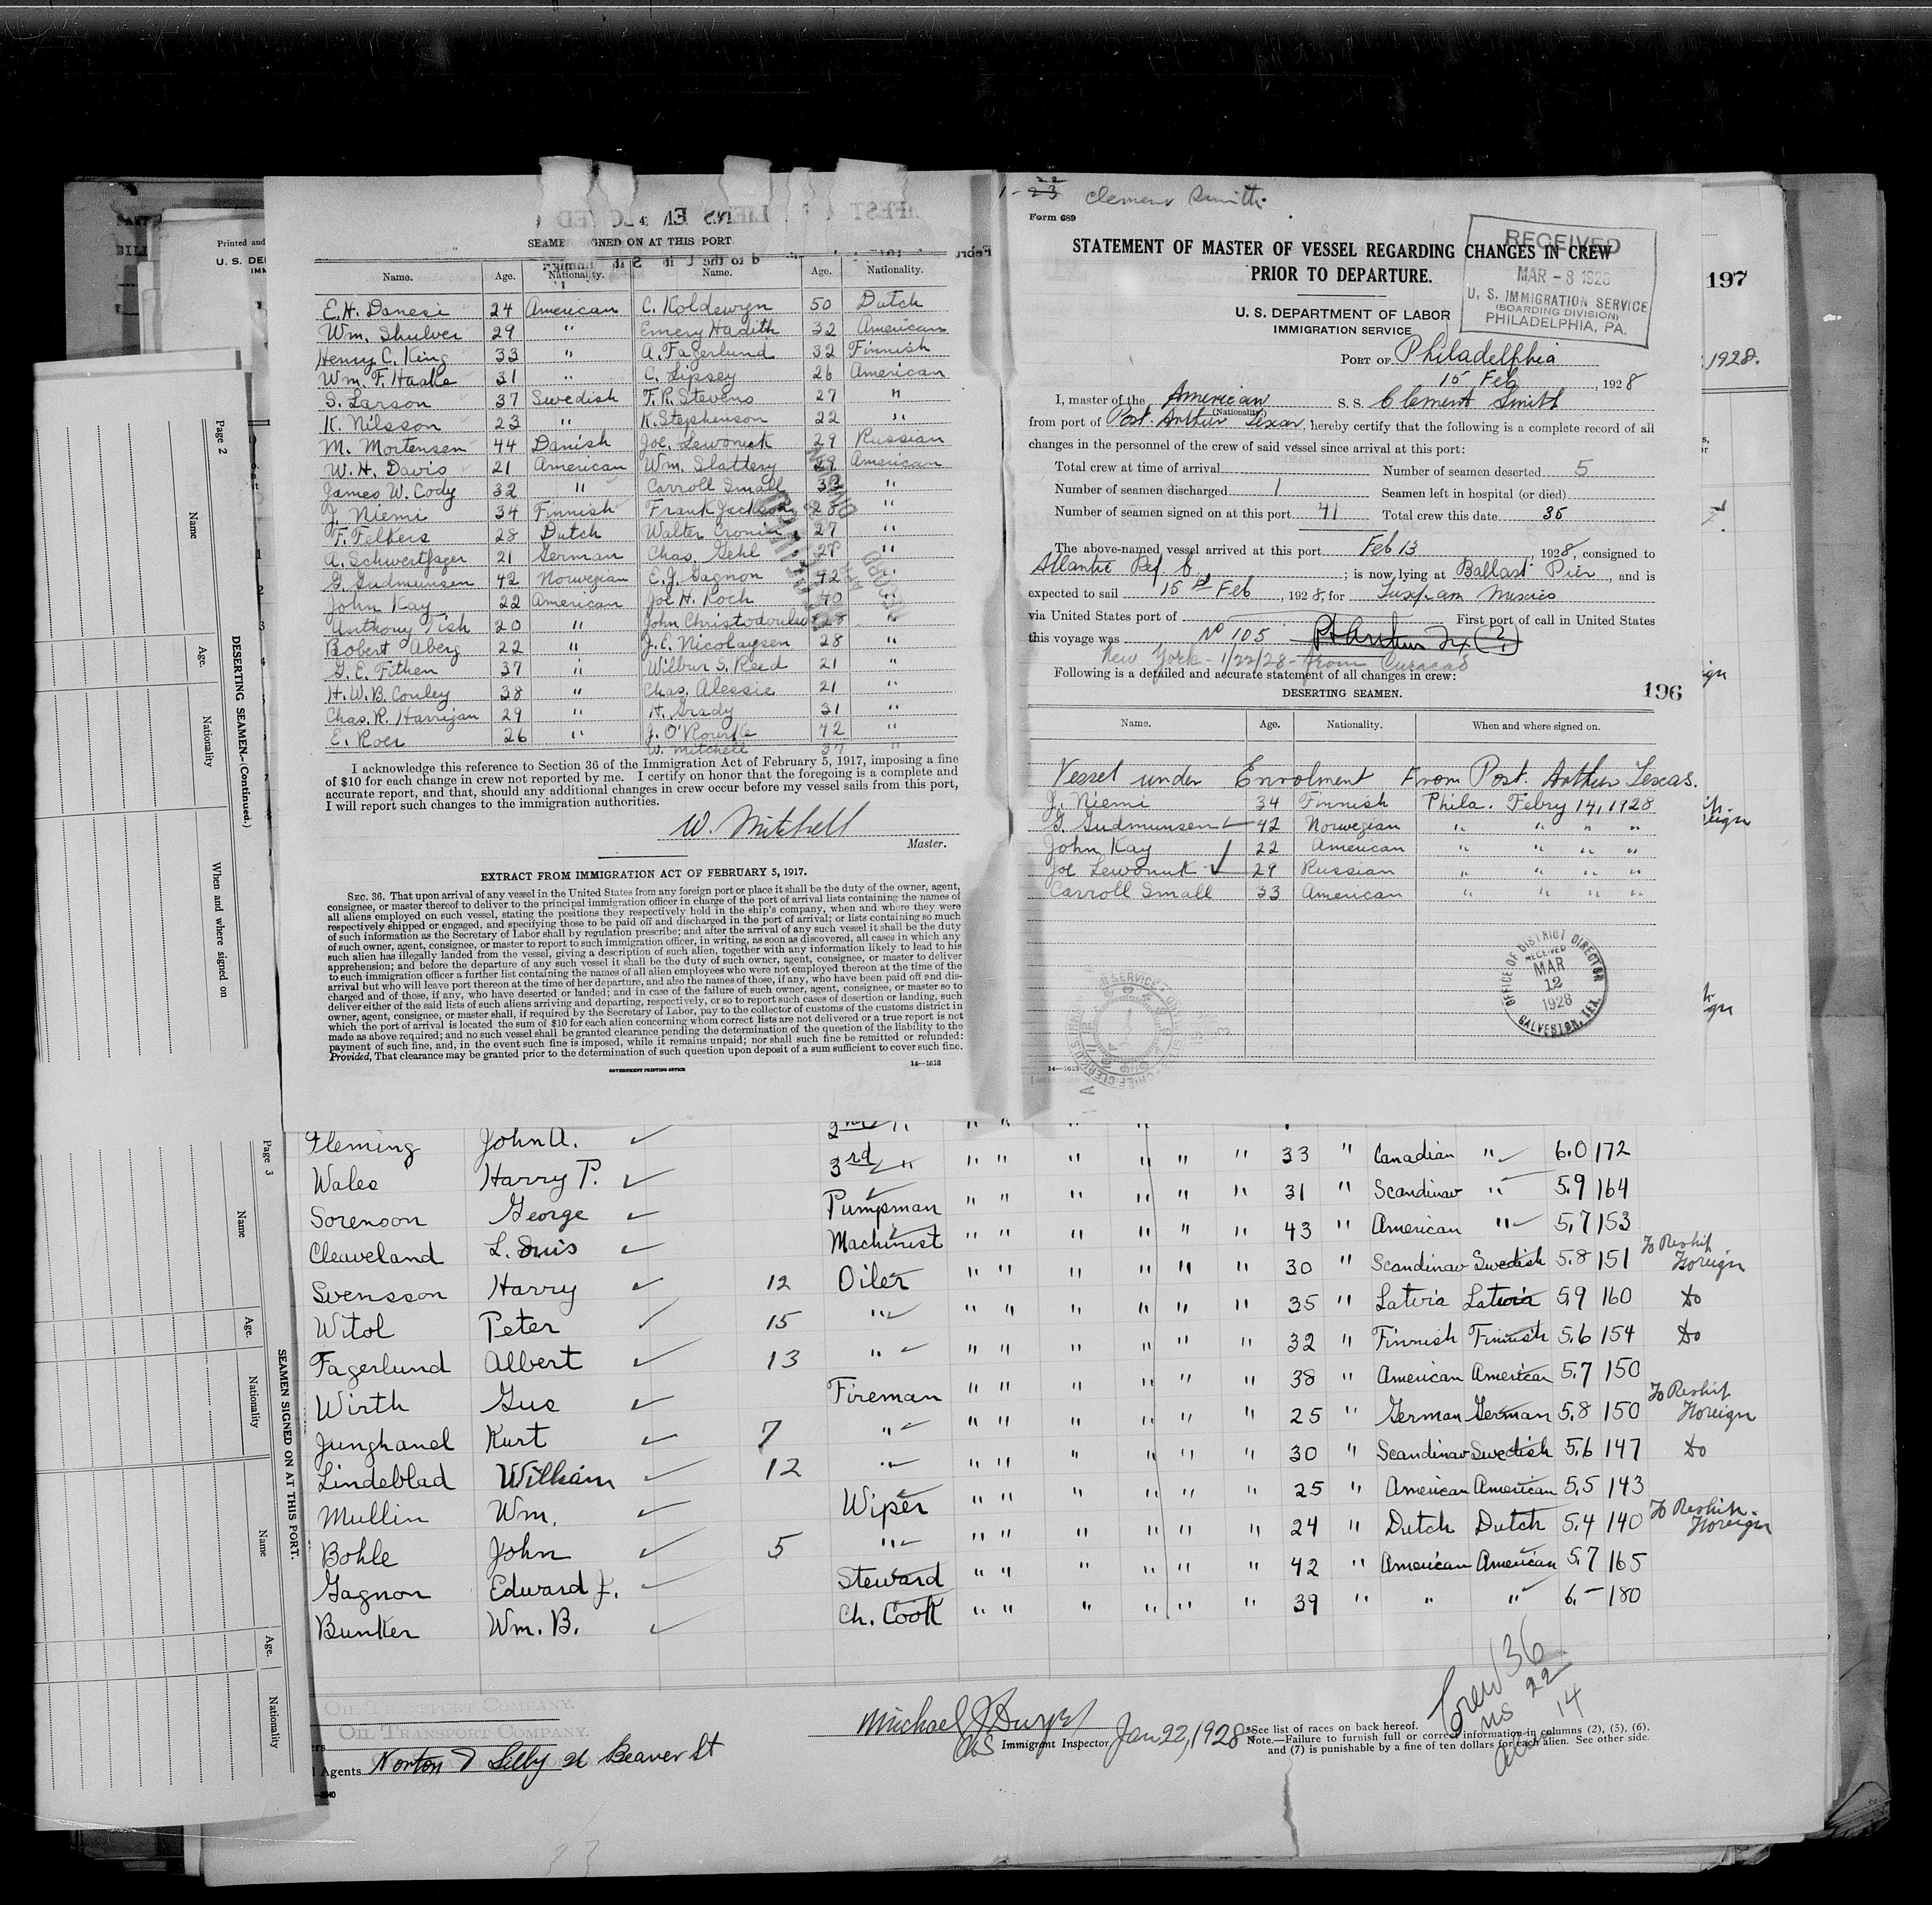 SEAMEN SIGNED ON AT THIS PORT
Name. Age. Nationality. Name. Age. Nationality.
E.H. Danesi 24 American C. Koldewyn 50 Dutch
Wm. Shulver 29 " Emery Hadith 32 American
Henry C. King 33 " A. Fagerlund 32 Finnish
Wm. F. Haake 31 " C. Lipsey 26 American
S. Larson 37 Swedish F. R. Stevens 27 "
K. Nilsson 23 " K. Stephenson 22 "
M. Mortensen 44 Danish Joe Lewonuk 29 Russian
W. H. Davis 21 American Wm. Slattery 29 American
James W. Cody 32 " Carroll Small 33 "
J. Niemi 34 Finnish Frank Jackson 28 "
F. Felkers 28 Dutch Walter Cronin 27 "
A. Schwertfager 21 German Chas. Gehl 27 "
G. Gudmunsen 42 Norwegian E.J. Gagnon 42 "
John Kay 22 American Joe H. Koch 40 "
Anthony Tish 20 " John Christodoulso 28 "
Robert Aberg 22 " J. E. Nicolaysen 28 "
G. E. Fithen 37 " Wilbur S. Reed 21 "
H. W. B. Conley 38 " Chas. Alessie 21 "
Chas. R. Harrigan 29 " H. Grady 31 "
E. Roes 26 " J. O'Rourke 42 "
W. Mitchell 37 "
I acknowledge this reference to Section 36 of the Immigration Act of February 5, 1917, imposing a fine
of $10 for each change in crew not reported by me. I certify on honor that the foregoing is a complete and
accurate report, and that, should any additional changes in crew occur before my vessel sails from this port,
I will report such changes to the immigration authorities.
W. Mitchell
Master.
EXTRACT FROM IMMIGRATION ACT OF FEBRUARY 5, 1917.
SEC. 36. That upon arrival of any vessel in the United States from any foreign port or place it shall be the duty of the owner, agent,
consignee, or master thereof to deliver to the principal immigration officer in charge of the port of arrival lists containing the names of
all aliens employed on such vessel, stating the positions they respectively hold in the ship's company, when and where they were
respectively shipped or engaged, and specifying those to be paid off and discharged in the port of arrival; or lists containing so much
of such information as the Secretary of Labor shall by regulation prescribe; and after the arrival of any such vessel it shall be the duty
of such owner, agent, consignee, or master to report to such immigration officer, in writing, as soon as discovered, all cases in which any
such alien has illegally landed from the vessel, giving a description of such alien, together with any information likely to lead to his
apprehension; and before the departure of any such vessel it shall be the duty of such owner, agent, consignee, or master to deliver
to such immigration officer a further list containing the names of all alien employees who were not employed thereon at the time of the
arrival but who will leave port thereon at the time of her departure, and also the names of those, if any, who have been paid off and dis-
charged and of those, if any, who have deserted or landed; and in case of the failure of such owner, agent, consignee, or master so to
deliver either of the said lists of such aliens arriving and departing, respectively, or so to report such cases of desertion or landing, such
owner, agent, consignee, or master shall, if required by the Secretary of Labor, pay to the collector of customs of the customs district in
which the port of arrival is located the sum of $10 for each alien concerning whom correct lists are not delivered or a true report is not
made as above required; and no such vessel shall be granted clearance pending the determination of the question of the liability to the
payment of such fine, and, in the event such fine is imposed, while it remains unpaid; nor shall such fine be remitted or refunded:
Provided, That clearance may be granted prior to the determination of such question upon deposit of a sum sufficient to cover such fine.
14—1613
GOVERNMENT PRINTING OFFICE
1-23 22
Clement Smith.
Form 689
STATEMENT OF MASTER OF VESSEL REGARDING CHANGES IN CREW
PRIOR TO DEPARTURE.
RECEIVED
MAR - 8 1928
U. S. IMMIGRATION SERVICE
(BOARDING DIVISION)
PHILADELPHIA, PA.
U. S. DEPARTMENT OF LABOR
IMMIGRATION SERVICE
PORT OF Philadelphia
15 Feb, 1928
I, master of the American S. S. Clement Smith
(Nationality)
from port of Port. Arthur Texas, hereby certify that the following is a complete record of all
changes in the personnel of the crew of said vessel since arrival at this port:
Total crew at time of arrival Number of seamen deserted 5
Number of seamen discharged 1 Seamen left in hospital (or died)
Number of seamen signed on at this port 41 Total crew this date 35
The above-named vessel arrived at this port Feb 13, 1928, consigned to
Atlantic Ref. Co; is now lying at Ballast Pier, and is
expected to sail 15th Feb, 1928 for Tuxpam Mexico
via United States port of First port of call in United States
this voyage was No 105 Pt Arthur Tx (?)
New York - 1/22/28 - from Curacao
Following is a detailed and accurate statement of all changes in crew:
DESERTING SEAMEN.
196
Name. Age. Nationality. When and where signed on.
Vessel under Enrolment From Port. Arthur Texas.
J. Niemi 34 Finnish Phila. Febry 14, 1928
G. Gudmunsen 42 Norwegian " " " "
John Kay 22 American " " " "
Joe Lewonuk 29 Russian " " " "
Carroll Small 33 American " " " "
OFFICE OF DISTRICT DIRECTOR
RECEIVED
MAR
12
1928
GALVESTON, TEX.
14—1613
197
, 1928.
Printed and
U. S. DE
Page 2
DESERTING SEAMEN.—(Continued.)
Name Age. Nationality When and where signed on
Page 3
SEAMEN SIGNED ON AT THIS PORT.
Name Age. Nationality Name Age. Nationality
Fleming John A. 2nd "
Wales Harry P. 3rd " " " " " " " 33 " Canadian " 6.0 172
Sorenson George Pumpman " " " " " " 31 " Scandinav " 5.9 164
Cleaveland L. Suis Machinist " " " " " " 43 " American " 5.7 153
Svensson Harry 12 Oiler " " " " " " 30 " Scandinav Swedish 5.8 151 To Reship Foreign
Witol Peter 15 " " " " " " " 35 " Latvia Latvia 5.9 160 do
Fagerlund Albert 13 " " " " " " " 32 " Finnish Finnish 5.6 154 do
Wirth Gus Fireman " " " " " " 38 " American American 5.7 150
Junghanel Kurt 7 " " " " " " " 25 " German German 5.8 150 To Reship Foreign
Lindeblad William 12 " " " " " " " 30 " Scandinav Swedish 5.6 147 do
Mullin Wm. Wiper " " " " " " 25 " American American 5.5 143
Bohle John 5 " " " " " " " 24 " Dutch Dutch 5.4 140 To Reship Foreign
Gagnon Edward J. Steward " " " " " " 42 " American American 5.7 165
Bunker Wm. B. Ch. Cook " " " " " " 39 " " " 6.- 180
Crew 36
US 22
14
OIL TRANSPORT COMPANY.
OIL TRANSPORT COMPANY.
Agents Norton & Lilly 26 Beaver St
Immigrant Inspector Jan 22, 1928
*See list of races on back hereof.
Note.—Failure to furnish full or correct information in columns (2), (5), (6),
and (7) is punishable by a fine of ten dollars for each alien. See other side.